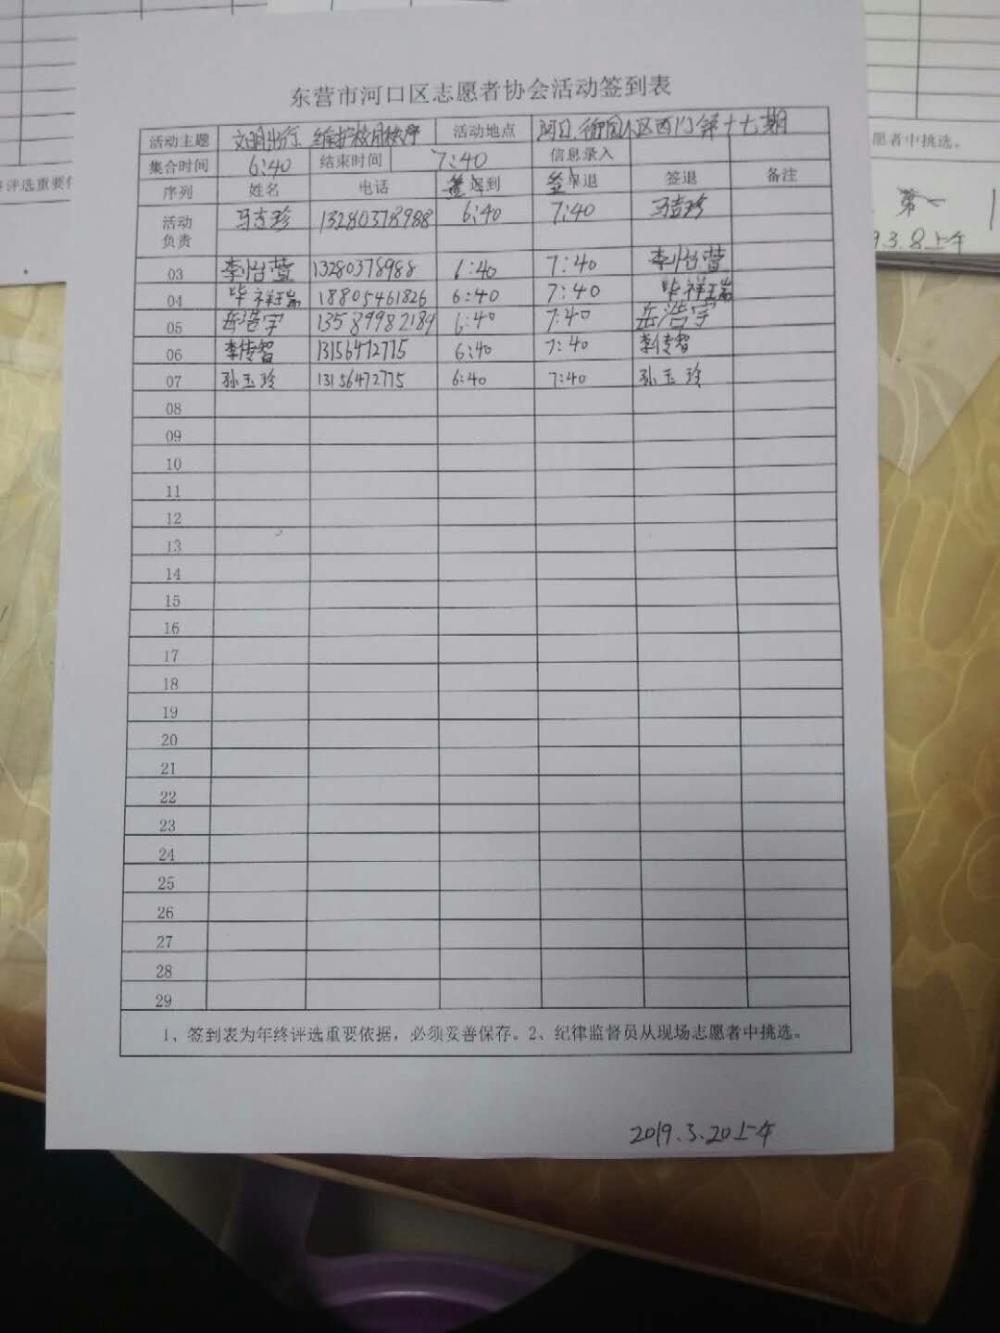 东营市河口区志愿者协会活动签到表
活动主题 文明出行、维护校园秩序 活动地点 河口 小区西门 第十七期
集合时间 6:40 结束时间 7:40 信息录入
序列 姓名 电话 签到 签退 签退 备注
活动负责 马吉珍 13280378988 6:40 7:40 马吉珍
03 李怡萱 13280378988 6:40 7:40 李怡萱
04 毕祥瑞 18805461826 6:40 7:40 毕祥瑞
05 岳浩宇 13589982184 6:40 7:40 岳浩宇
06 李传智 13156472775 6:40 7:40 李传智
07 孙玉玲 13156472775 6:40 7:40 孙玉玲
08
09
10
11
12
13
14
15
16
17
18
19
20
21
22
23
24
25
26
27
28
29
1、签到表为年终评选重要依据，必须妥善保存。2、纪律监督员从现场志愿者中挑选。
2019.3.20上午
愿者中挑选。
第一
9.3.8上午
评选重要